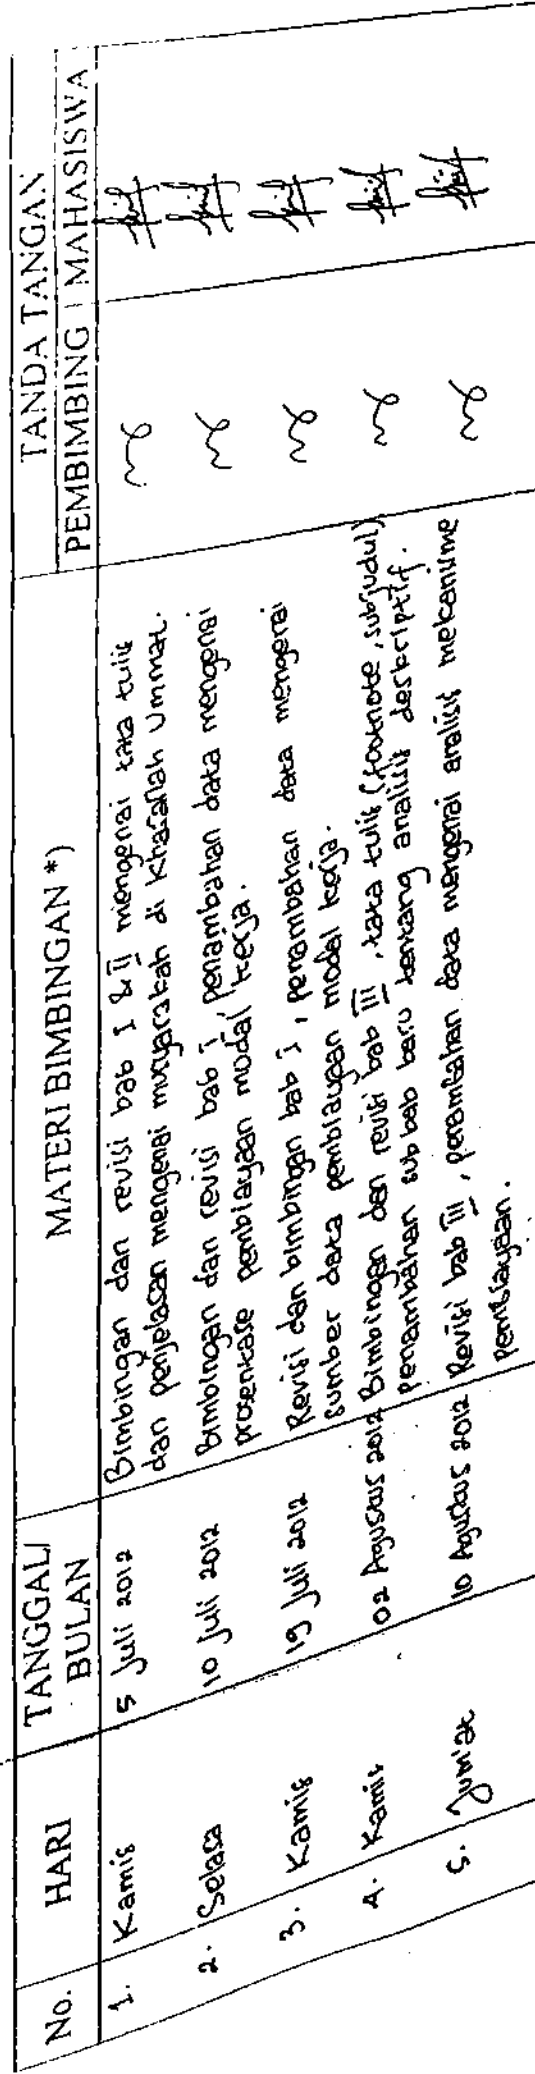 No. HARI TANGGAL/ BULAN MATERI BIMBINGAN *) TANDA TANGAN
PEMBIMBING MAHASISWA
1. Kamis 5 Juli 2012 Bimbingan dan revisi bab I & II mengenai tata tulis
dan penjelasan mengenai musyarakah di Khazanah Ummat.
2. Selasa 10 Juli 2012 Bimbingan dan revisi bab I, penambahan data mengenai
prosentase pembiayaan modal kerja.
3. Kamis 19 Juli 2012 Revisi dan bimbingan bab I, penambahan data mengenai
sumber data pembiayaan modal kerja.
4. Kamis 02 Agustus 2012 Bimbingan dan revisi bab III, tata tulis (footnote, subjudul)
penambahan sub bab baru tentang analisis deskriptif.
5. Jum'at 10 Agustus 2012 Revisi bab III, penambahan data mengenai analisis mekanisme
pembiayaan.